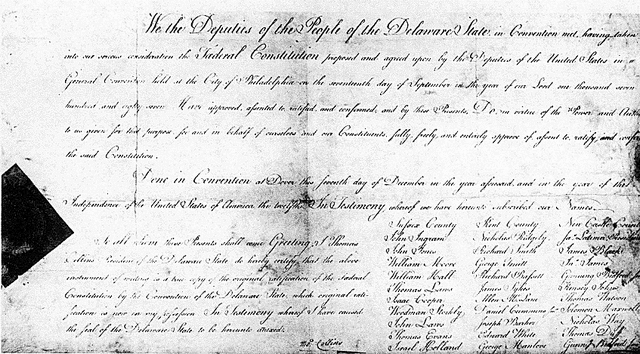 We the Deputies of the People of the Delaware State, in Convention met, having taken
into our serious consideration the Fœderal Constitution proposed and agreed upon by the Deputies of the United States in a
General Convention held at the City of Philadelphia on the seventeenth day of September in the year of our Lord one thousand seven
hundred and eighty seven, Have approved, assented to, ratified, and confirmed, and by these Presents, Do, in virtue of the Power and
to us given for that purpose for and in behalf of ourselves and our Constituents, fully, freely, and entirely approve of, assent to, ratify, and
the said Constitution.
Done in Convention at Dover this seventh day of December in the year aforesaid, and in the year of the
Independence of the United States of America the twelfth. In Testimony whereof we have hereunto subscribed our Names.
Sussex County Kent County New Castle County
To all whom these Presents shall come Greeting, I Thomas
Collins President of the Delaware State do hereby certify, that the above
instrument of writing is a true copy of the original ratification of the Fœderal
Constitution by the Convention of the Delaware State, which original rati-
fication is now in my possession. In Testimony whereof I have caused
the seal of the Delaware State to be hereunto annexed.
John Ingram Nicholas Ridgely
John Jones Richard Smith James Black
William Moore George Truitt Jn° James
William Hall Richard Bassett Gunning Bedford
Thomas Laws James Sykes Kensey Johns
Isaac Cooper Allen McLane Thomas Watson
Woodman Stockly Daniel Cummins Solomon Maxwell
John Laws Joseph Barker Nicholas Way
Thomas Evans Edward White Thomas Duff
Israel Holland George Manlove Gunning Bedford
Collins